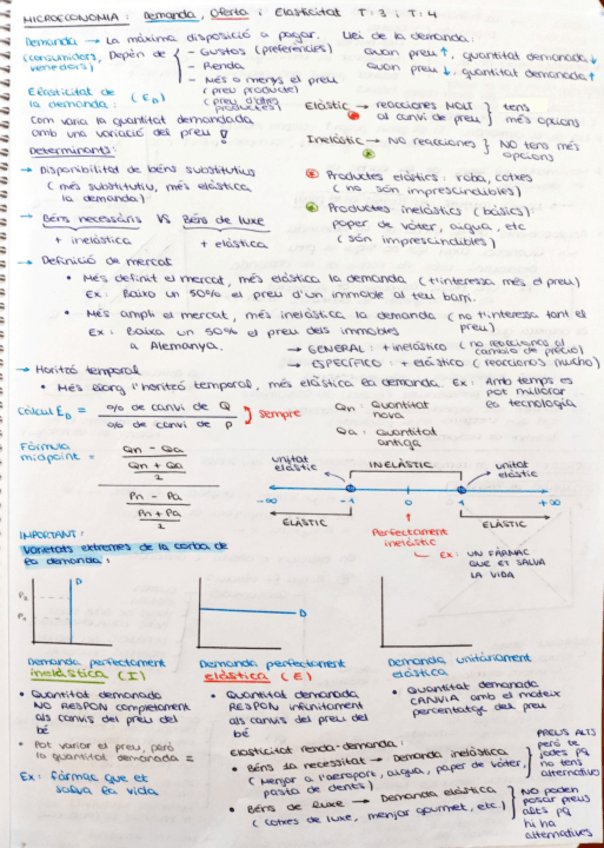 MICROECONOMIA : Demanda, Oferta i Elasticitat T:3 i T:4
Demanda → La màxima disposició a pagar.
(consumidors, venedors) Depèn de
- Gustos (preferències)
- Renda
- Més o menys el preu
(preu producte)
(preu d'altres productes)
Llei de la demanda:
quan preu ↑, quantitat demanada ↓
quan preu ↓, quantitat demanada ↑
Elasticitat de
la demanda : (ED)
Com varia la quantitat demandada
amb una variació del preu !
Elàstic → reacciones MOLT
al canvi de preu } tens
més opcions
Inelàstic → NO reacciones } NO tens més
opcions
Determinants:
→ Disponibilitat de béns substitutius
(més substitutiu, més elàstica
la demanda)
Productes elàstics: roba, cotxes
(no són imprescindibles)
Productes inelàstics (bàsics):
paper de vàter, aigua, etc
(són imprescindibles)
→ Béns necessaris VS Béns de luxe
+ inelàstica + elàstica
→ Definició de mercat
• Més definit el mercat, més elàstica la demanda (t'interessa més el preu)
Ex: Baixo un 50% el preu d'un immoble al teu barri.
• Més ampli el mercat, més inelàstica la demanda (no t'interessa tant el preu)
Ex: Baixa un 50% el preu dels immobles
a Alemanya.
→ GENERAL: + inelàstico (no reaccionas al cambio de precio)
→ ESPECÍFICO: + elàstico (reaccionas mucho)
→ Horitzó temporal
• Més llarg l'horitzó temporal, més elàstica la demanda. Ex: Amb temps es
pot millorar
la tecnologia
càlcul ED = % de canvi de Q
% de canvi de P
sempre
Qn: Quantitat
nova
Qa: Quantitat
antiga
Fórmula
midpoint =
Qn - Qa
Qn + Qa
2
Pn - Pa
Pn + Pa
2
unitat
elàstic
INELÀSTIC
unitat
elàstic
-∞ -1 0 1 +∞
ELÀSTIC ELÀSTIC
Perfectament
inelàstic
Ex: UN FÀRMAC
QUE ET SALVA
LA VIDA
IMPORTANT:
Varietats extremes de la corba de
la demanda:
D
D
Demanda perfectament
inelàstica (I)
• Quantitat demanada
NO RESPON completament
als canvis del preu del
bé
• Pot variar el preu, però
la quantitat demanada =
Ex: fàrmac que et
salva la vida
Demanda perfectament
elàstica (E)
• Quantitat demanada
RESPON infinitament
als canvis del preu del
bé
Demanda unitàriament
elàstica
• Quantitat demanada
CANVIA amb el mateix
percentatge del preu
Elasticitat renda-demanda:
• Béns 1a necessitat → Demanda inelàstica
(Menjar a l'aeroport, aigua, paper de vàter,
pasta de dents)
PREUS ALTS
però te
jodes pq
no tens
alternatives
• Béns de luxe → Demanda elàstica
(Cotxes de luxe, menjar gourmet, etc.)
NO poden
posar preus
alts pq
hi ha
alternatives